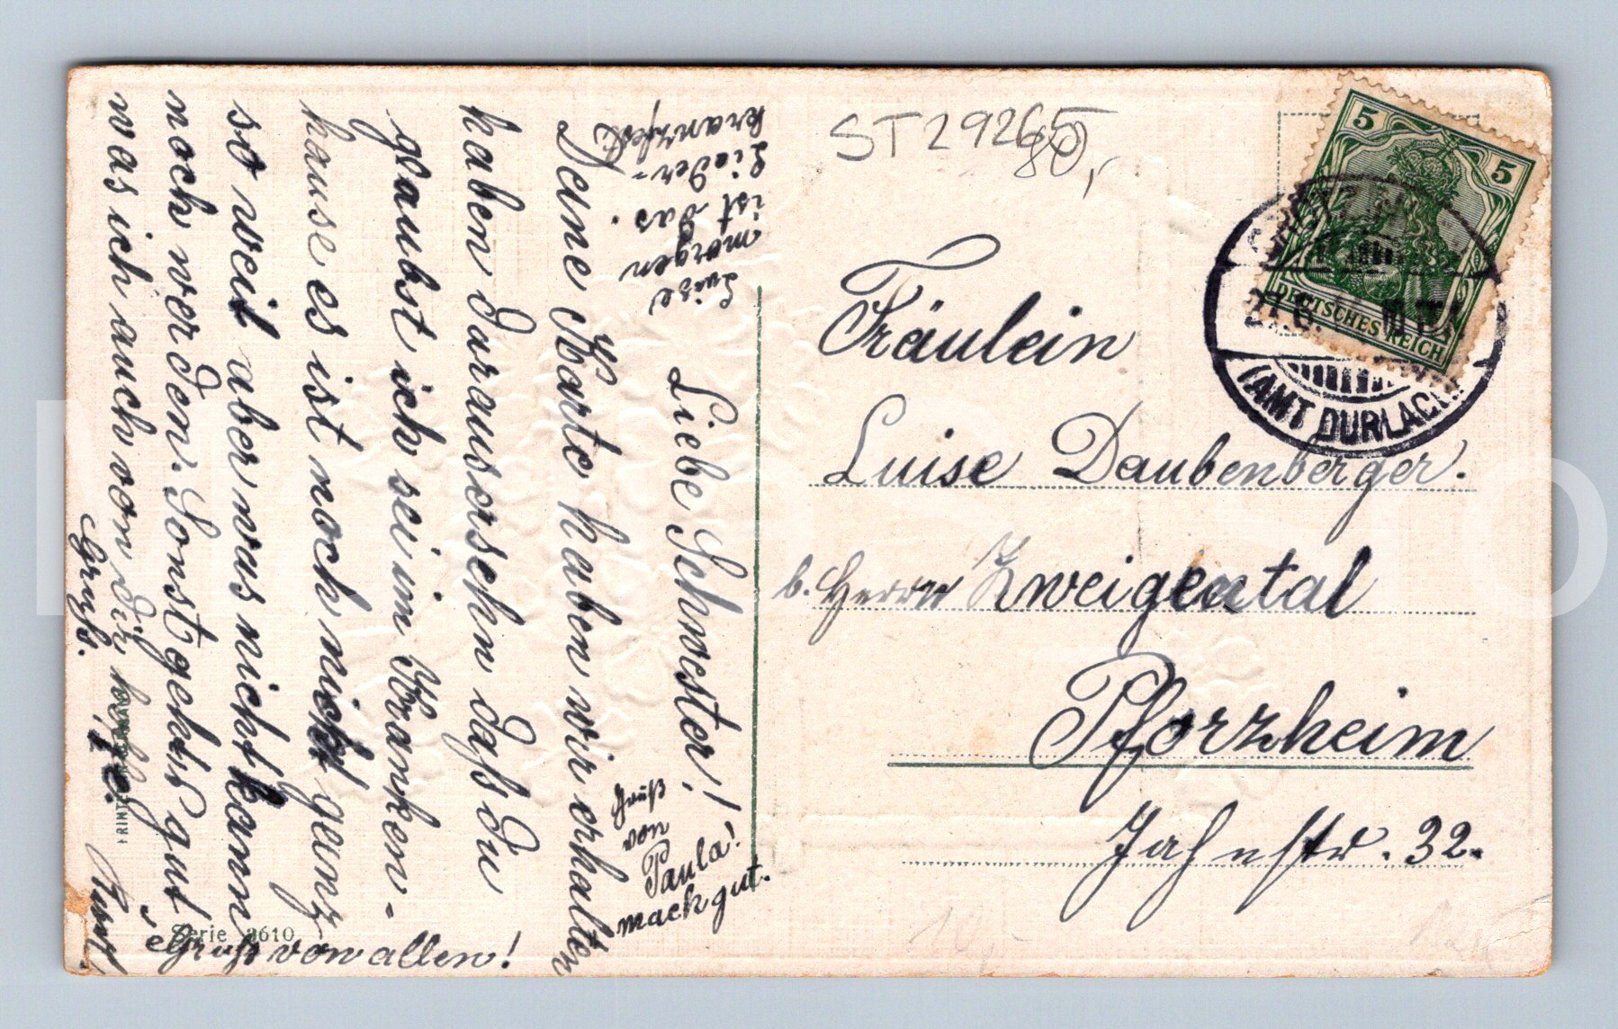 Liebe Schwester!
Deine Karte haben wir erhalten
haben daraus ersehn daß du
gaubst ich sei im Kranken-
hause es ist noch nicht ganz
so weit aber was nicht kann
noch werden. Sonst gehts gut
was ich auch von dir hoffe.
Gruß.
Gruß von allen!
Gruß
von
Paula!
mach gut.
Luise
morgen
ist das
Lieder-
kranzfest
ST29265
80,-
Fräulein
Luise Daubenberger.
b. Herrn Zweigental
Pforzheim
Jahnstr. 32.
5 5
DEUTSCHES REICH
(AMT DURLACH)
Serie 3610